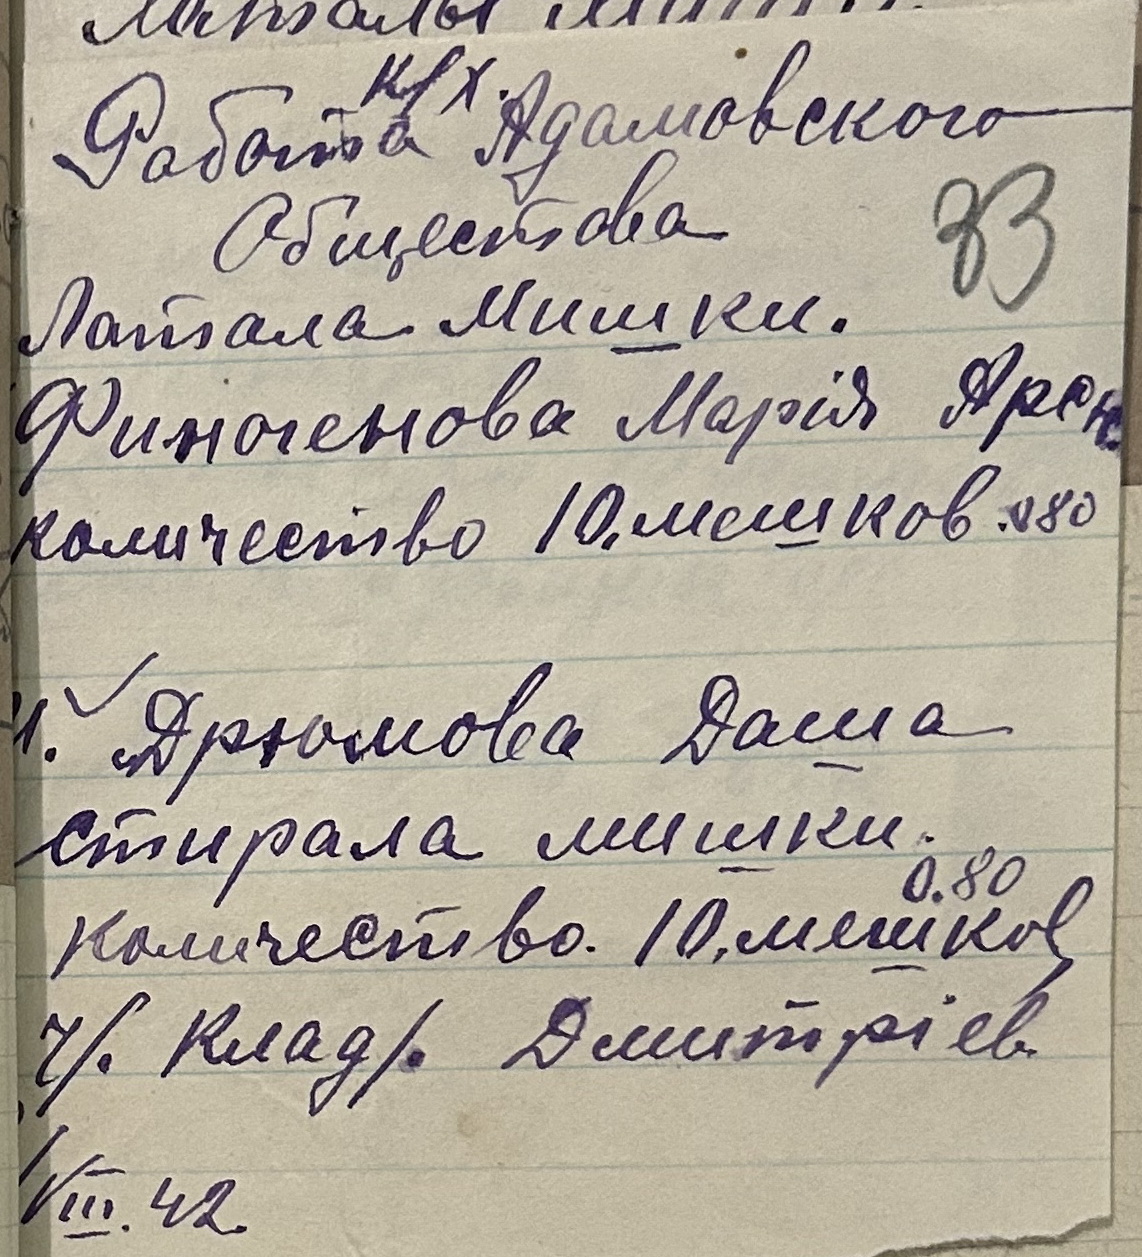 к/х.
Работа Адамовского
Общества
33
Латала Мишки.
Финогенова Марія
количество 10. мешков. 080
Дрюмова Даша
стирала мишки.
0.80
количество. 10. мешков
Клад/. Дмитріев.
1/VIII. 42.